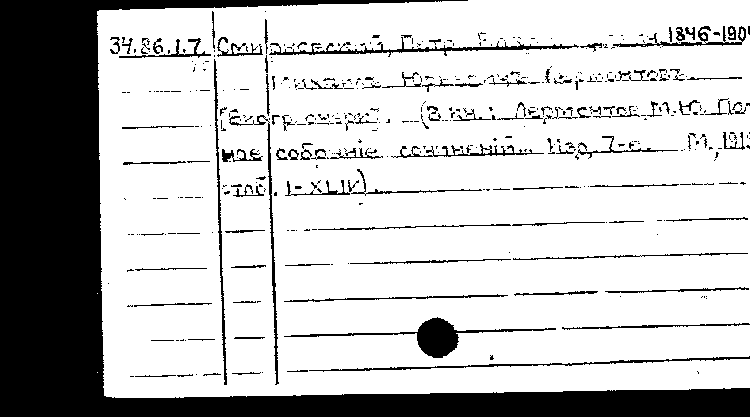 34.86.1.7. Смирновский, Петр 1846-1904
Михаилъ Юрьевичъ Лермонтовъ.
[Биогр. очерк]. (В кн.: Лермонтов М.Ю. Пол
ное собрание сочинений... Изд. 7-е. М., 191
стлб. I-XLIV).